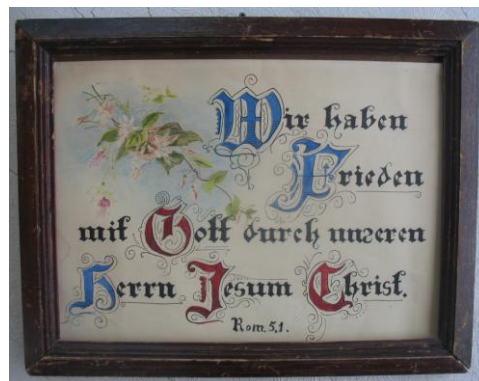 Wir haben
Frieden
mit Gott durch unseren
Herrn Jesum Christ.
Rom. 5,1.